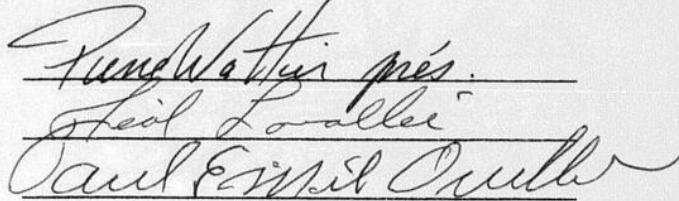 Pierre Wattier prés.
Réal Lavallée
Paul Emile Ouellet